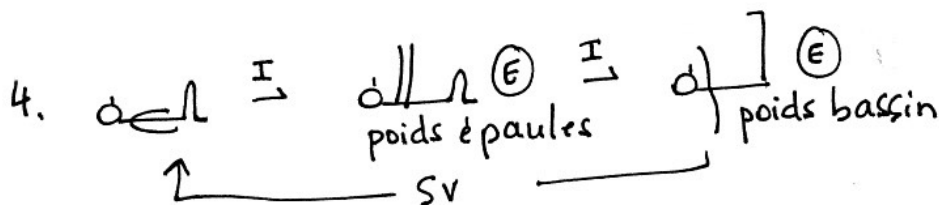 4. I E I E
poids épaules poids bassin
SV